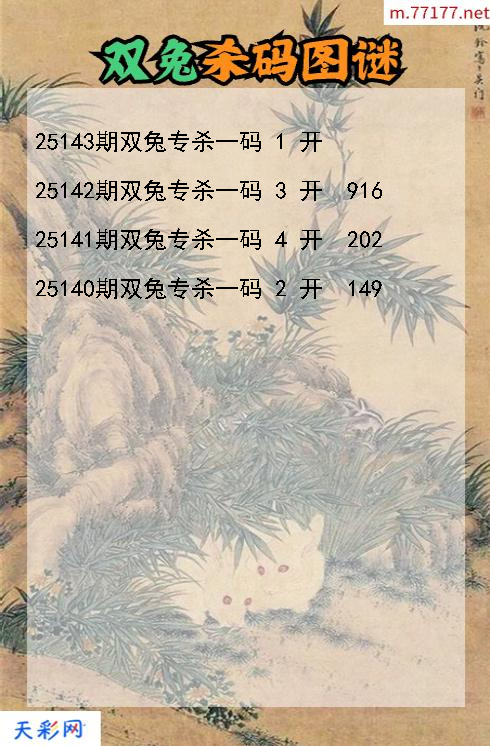 m.77177.net
双兔杀码图谜
25143期双兔专杀一码 1 开
25142期双兔专杀一码 3 开 916
25141期双兔专杀一码 4 开 202
25140期双兔专杀一码 2 开 149
天彩网